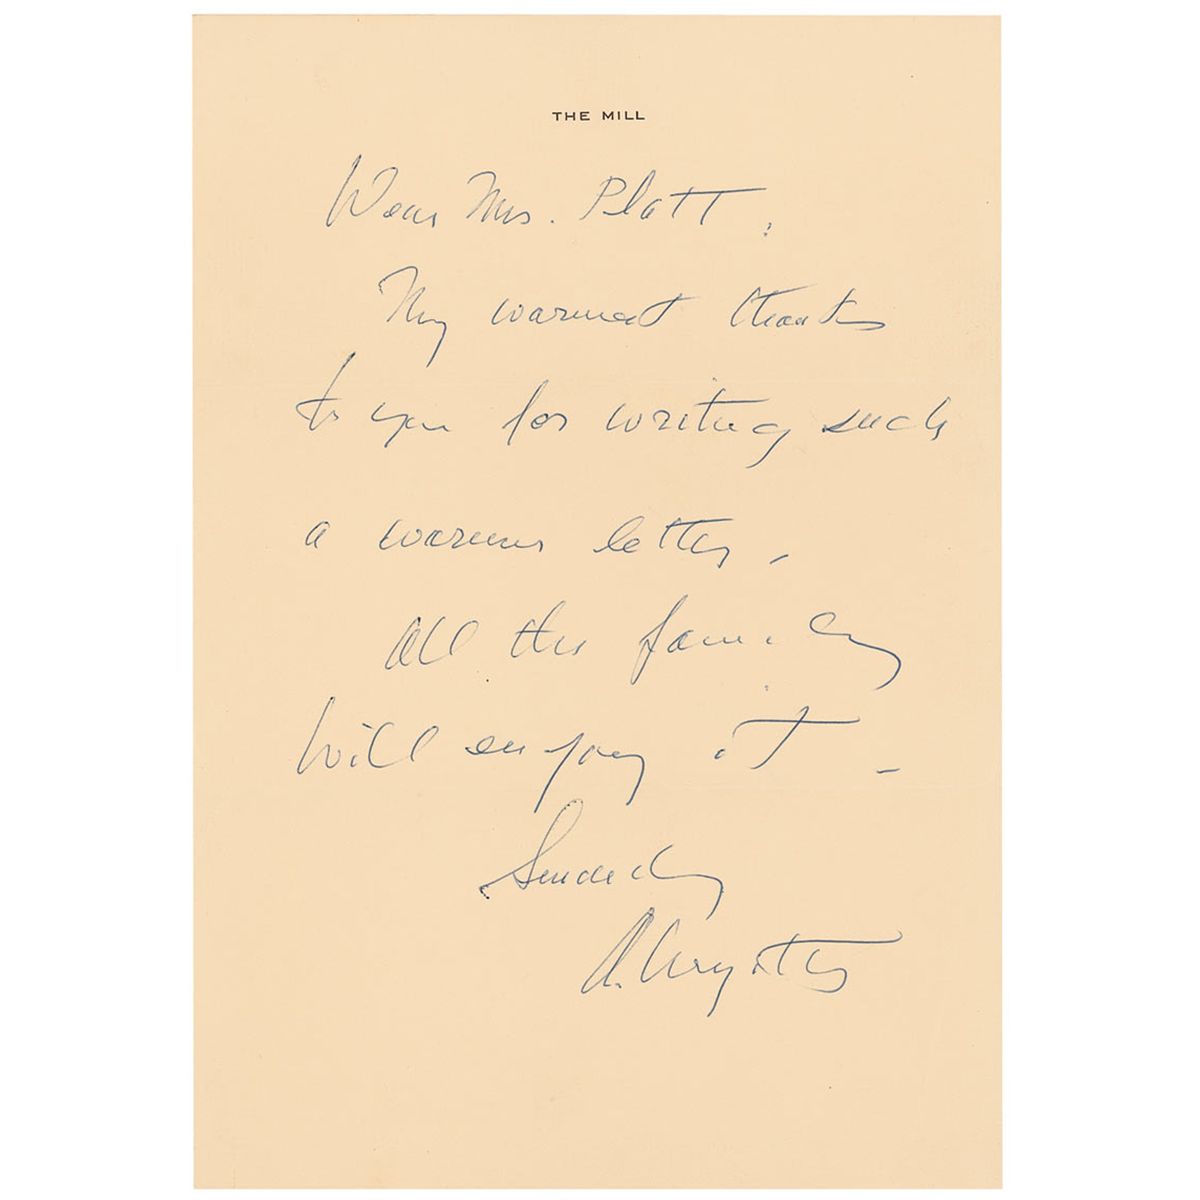 THE MILL
Dear Mrs. Platt,
My warmest thanks
to you for writing such
a warm letter.
All the family
will enjoy it -
Sincerely
A. Wyeth